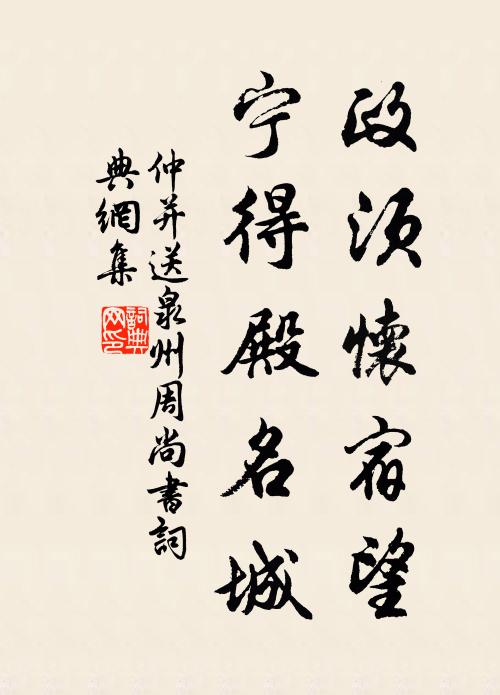 政须懷宿望
宁得殿名城
仲并送泉州周尚書詞
典網集
詞典网印